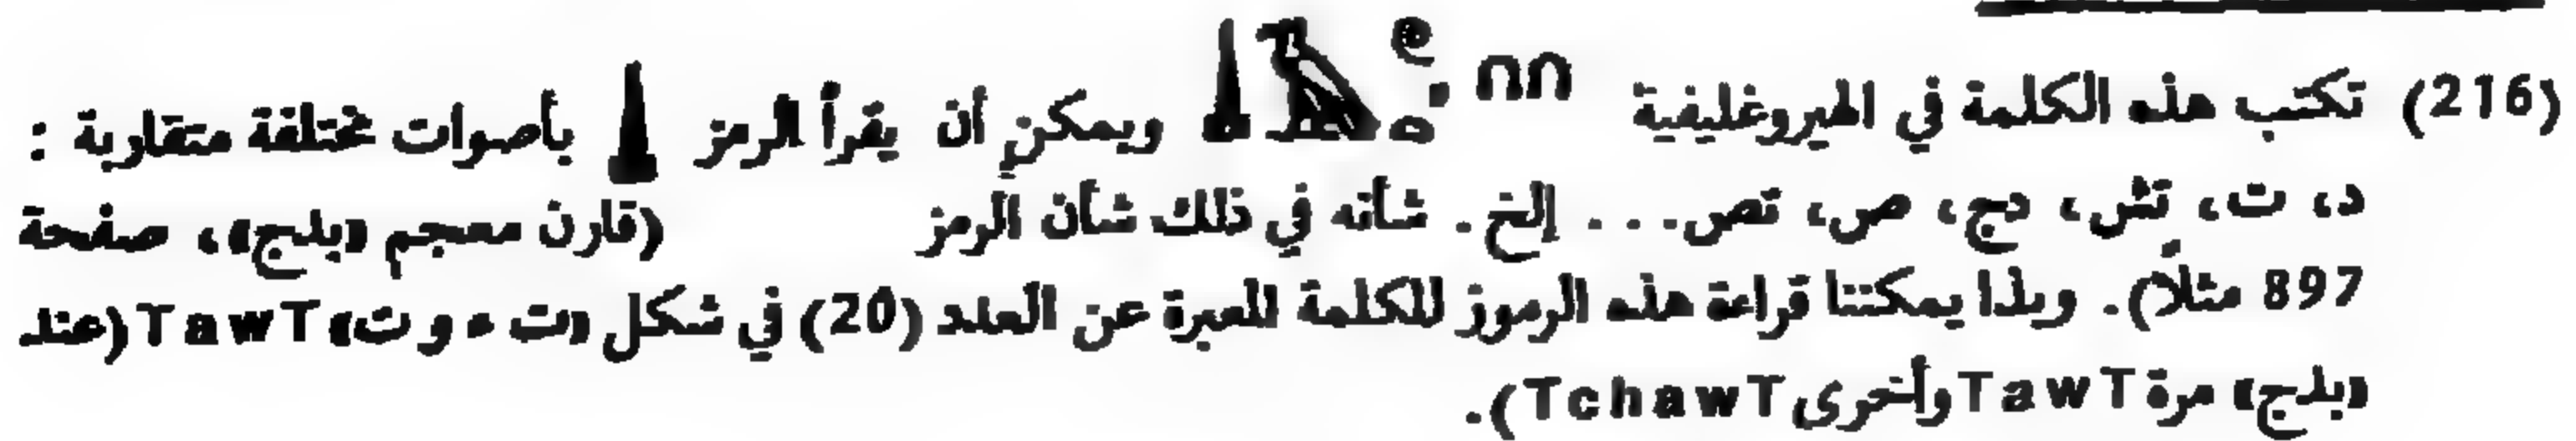 (216) تكتب هذه الكلمة في الهيروغليفية ويمكن أن يقرأ الرمز بأصوات مختلفة متقاربة :
د، ت، تش، دج، ص، تص. . . إلخ. شأنه في ذلك شأن الرمز (قارن معجم «بدج»، صفحة
897 مثلاً). وبذا يمكننا قراءة هذه الرموز للكلمة المعبرة عن العدد (20) في شكل «ت ء و ت» TawT (عند
«بدج» مرة TawT وأخرى TchawT).